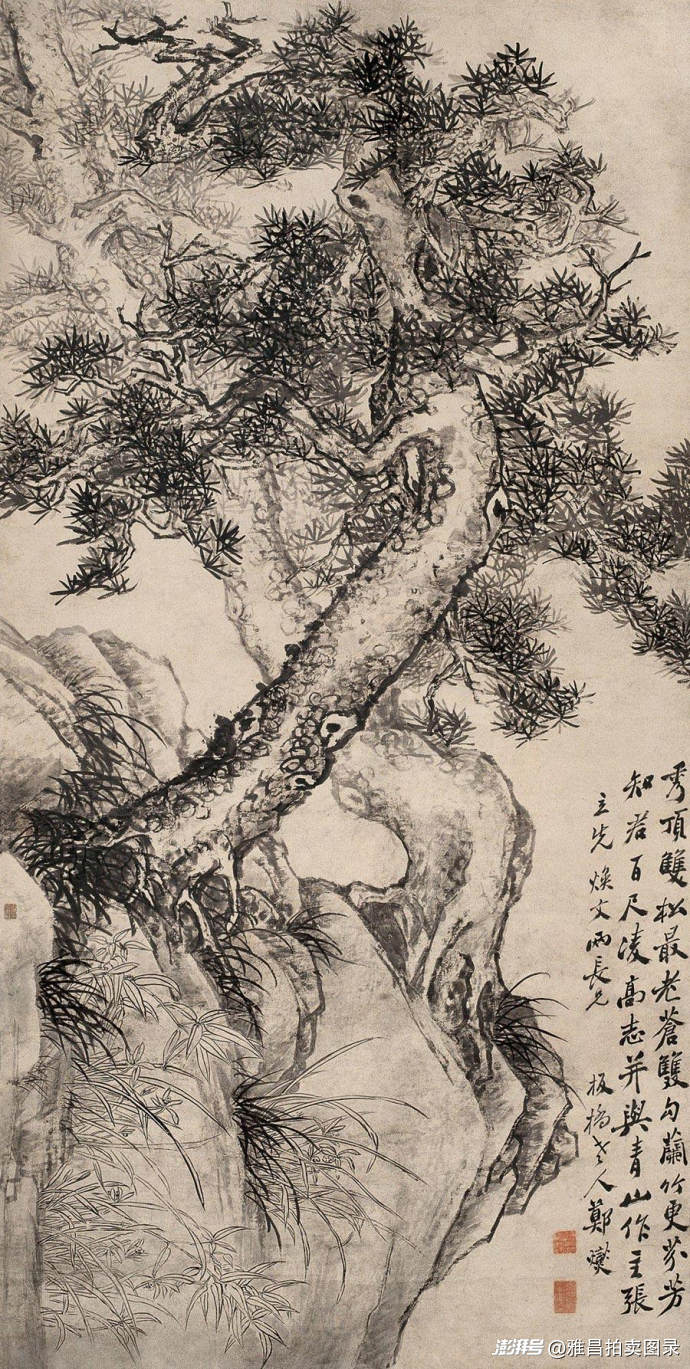 秀頂雙松最老蒼雙勾蘭竹更芬芳
知君百尺凌高志并與青山作主張
立先 煥文兩長兄
板橋老人鄭燮
澎湃号@雅昌拍卖图录